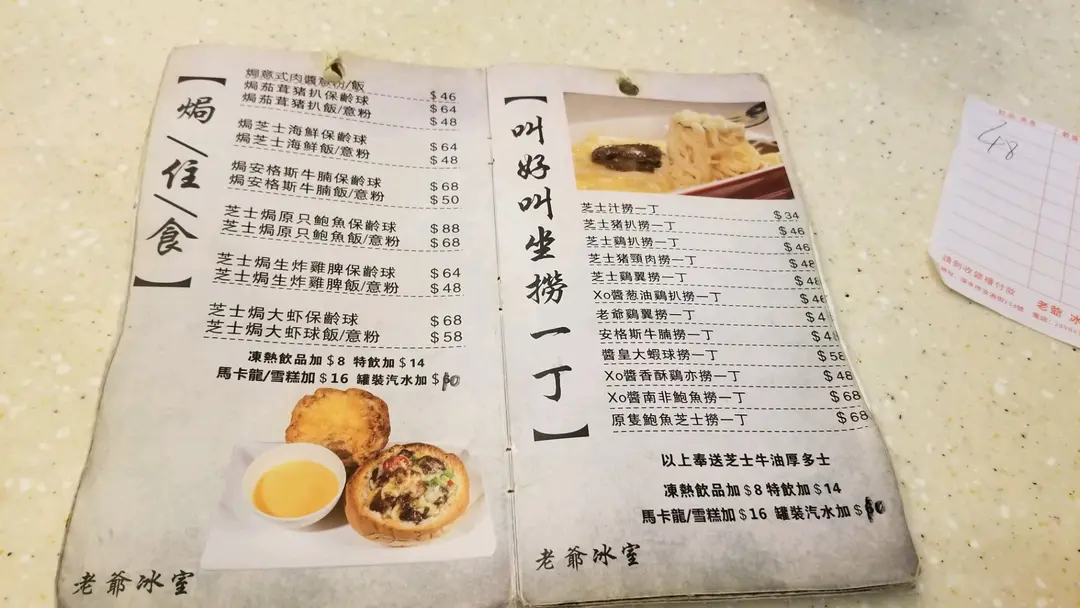 【焗/住/食】
焗意式肉醬意粉/飯 $46
焗茄茸豬扒保齡球 $64
焗茄茸豬扒飯/意粉 $48
焗芝士海鮮保齡球 $64
焗芝士海鮮飯/意粉 $48
焗安格斯牛腩保齡球 $68
焗安格斯牛腩飯/意粉 $50
芝士焗原只鮑魚保齡球 $88
芝士焗原只鮑魚飯/意粉 $68
芝士焗生炸雞脾保齡球 $64
芝士焗生炸雞脾飯/意粉 $48
芝士焗大虾保齡球 $68
芝士焗大虾球飯/意粉 $58
凍熱飲品加$8 特飲加$14
馬卡龍/雪糕加$16 罐裝汽水加$10
老爺冰室
【叫好叫坐撈一丁】
芝士汁撈一丁 $34
芝士豬扒撈一丁 $46
芝士鷄扒撈一丁 $46
芝士豬頸肉撈一丁 $48
芝士鷄翼撈一丁 $48
Xo醬葱油鷄扒撈一丁 $46
老爺鷄翼撈一丁 $4
安格斯牛腩撈一丁 $48
醬皇大蝦球撈一丁 $58
Xo醬香酥鷄亦撈一丁 $48
Xo醬南非鮑魚撈一丁 $68
原隻鮑魚芝士撈一丁 $68
以上奉送芝士牛油厚多士
凍熱飲品加$8特飲加$14
馬卡龍/雪糕加$16 罐裝汽水加$10
老爺冰室
48
請到收銀櫃付款
老爺冰